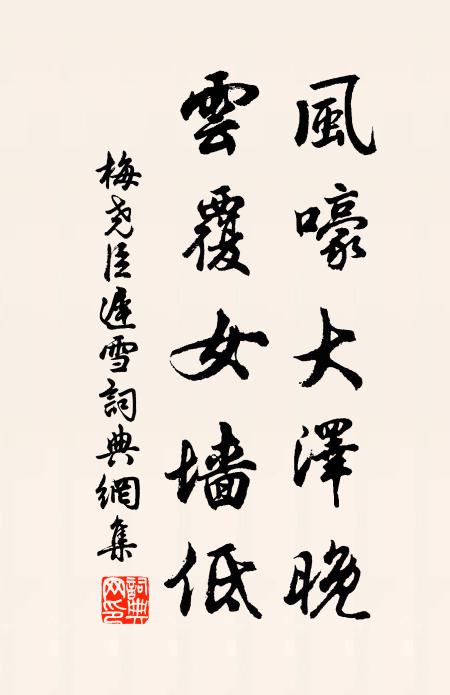 風嚎大澤晚
雲覆女墻低
梅堯臣遲雪詞典網集
詞典網印